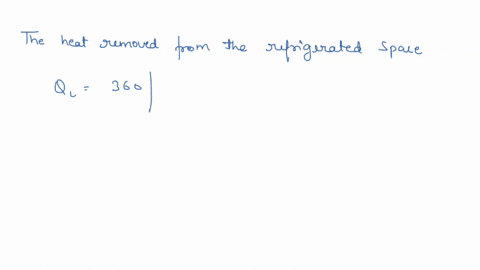 The heat removed from the refrigerated space
Q_L = 360